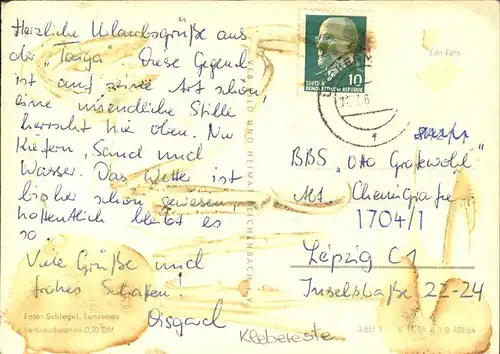 Herzliche Urlaubsgrüße aus
der "Taiga". Diese Gegend
ist auf seine Art schön,
eine unendliche Stille
herrscht hie oben. Nur
Kiefern, Sand und
Wasser. Das Wetter ist
bisher schön gewesen,
hoffentlich bleibt es
so.
Viele Grüße und
frohes Schaffen!
Foto: Schlegel, Lunzenau
Verbraucherpreis 0,20 DM
VEB BILD UND HEIMAT REICHENBACH
10
DEUTSCHE
DEMOKRATISCHE REPUBLIK
Echt Foto
BBS „Otto Grotewohl"
Abt. Chemigrafie
1704/1
Leipzig C1
Inselstraße 22-24
Klebereste